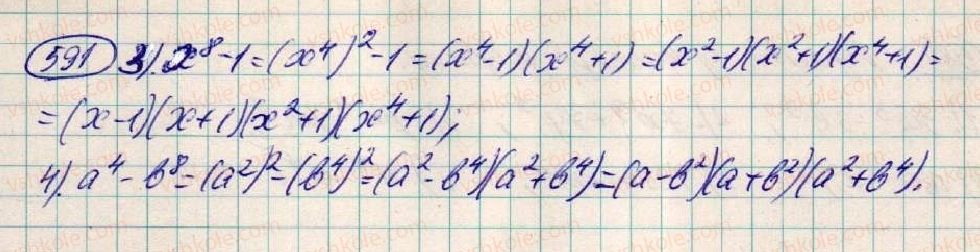 591 3). x⁸-1=(x⁴)²-1=(x⁴-1)(x⁴+1)=(x²-1)(x²+1)(x⁴+1)=
=(x-1)(x+1)(x²+1)(x⁴+1);
4). a⁴-b⁸=(a²)²-(b⁴)²=(a²-b⁴)(a²+b⁴)=(a-b²)(a+b²)(a²+b⁴).